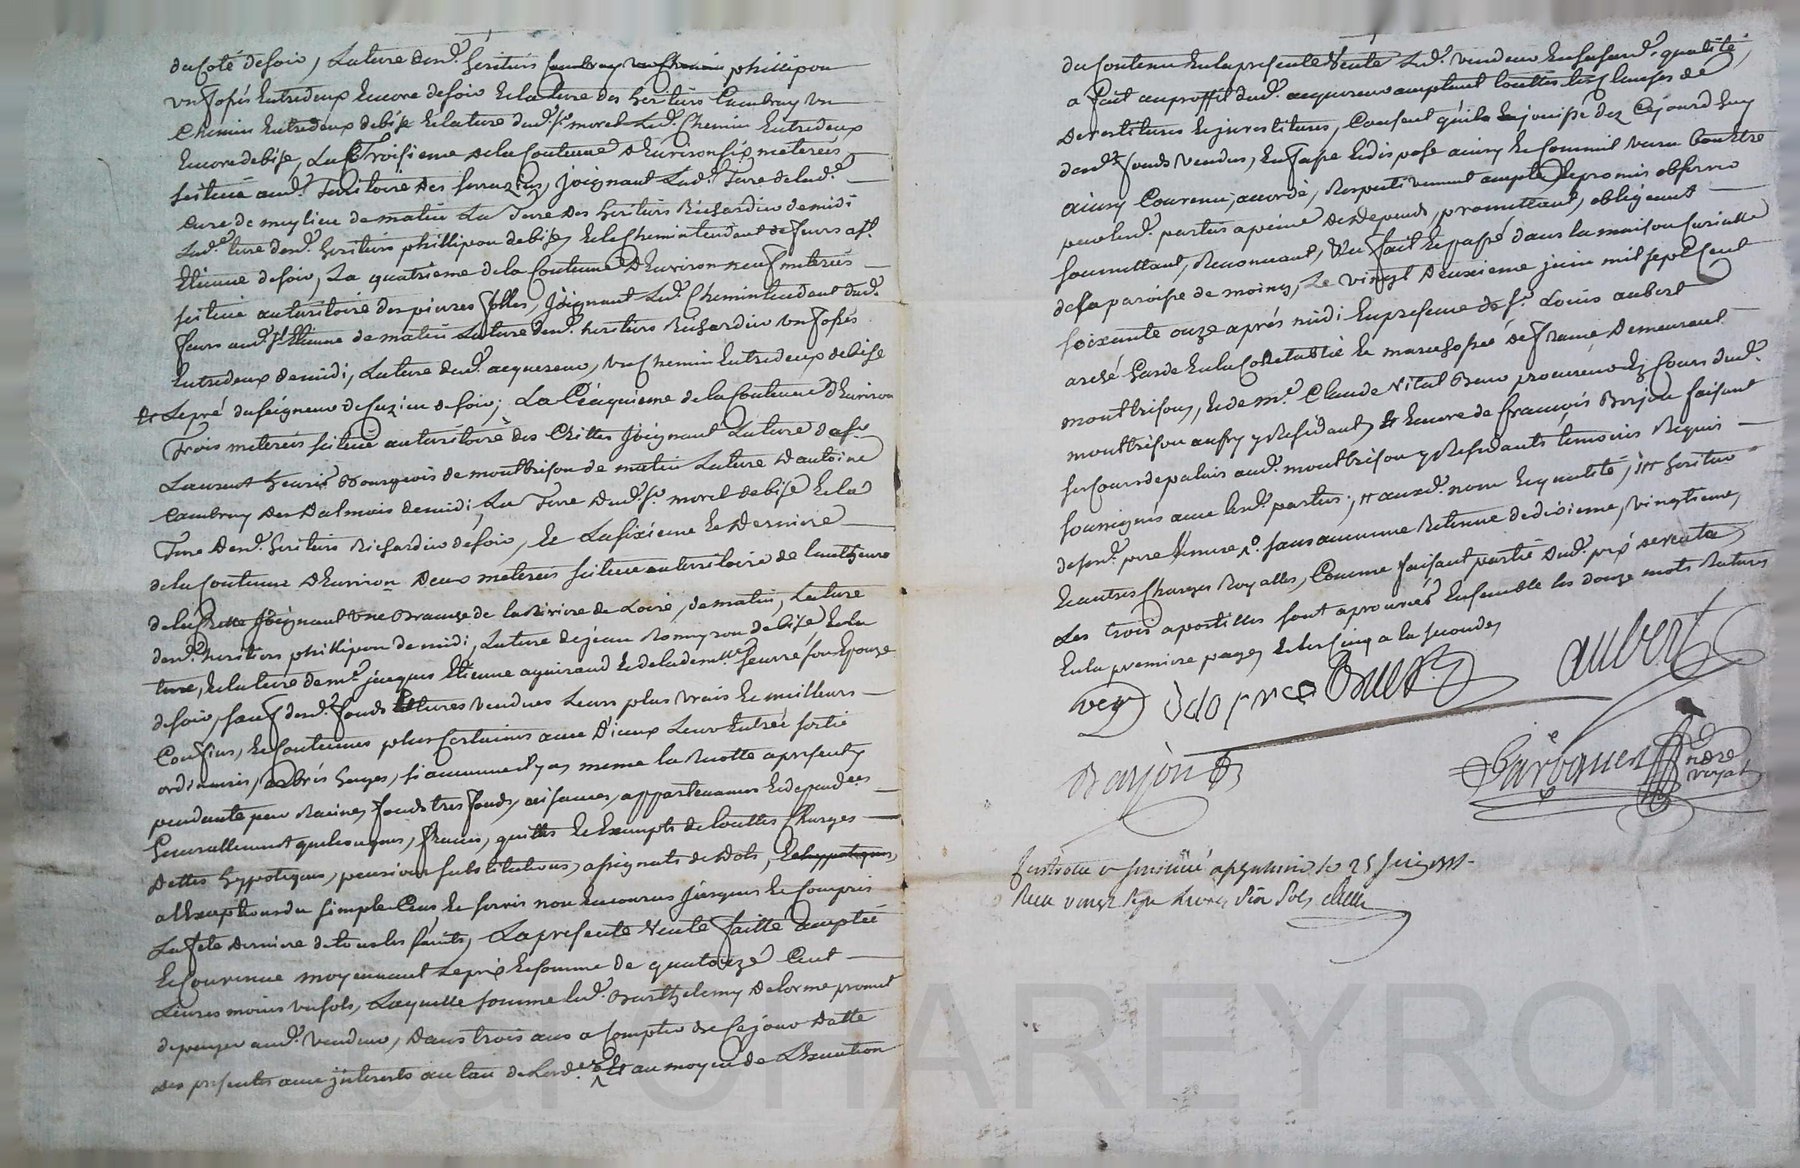 du Coté de soir, La terre desd.ts heritiers phillipon
un fossés Entredeux Encore de soir Et la terre des heritiers Cambray un
Chemin Entredeux de bise Et la terre dud.t s.r morel Led.t Chemin Entredeux
Encore de bise, La Troisieme de la Contenue D'Environ six meterées
scituée aud.t Territoire Des Joignant Lad.e Terre de lad.e
Cure de de matin La Terre Des heritiers Richardin de midi
Lad.e terre desd.ts heritiers phillipon de bise, Et le Chemin tendant de feurs a s.t
Etienne de soir, La quatrieme de la Contenue D'Environ neuf meterées
scituée au territoire des pierres folles, Joignant Led.t Chemin tendant dud.t
feurs aud.t s.t Etienne de matin La terre desd.ts heritiers Richardin un fossés
Entredeux de midi, La terre dud.t acquereur, un Chemin Entredeux de bise
Et Le pré du seigneur de suzieu de soir; La Cinquieme de la Contenue D'Environ
Trois meterées scituée au territoire des Chittes Joignant La terre de s.r
Laurent henris Bourgeois de montbrison de matin La terre D'antoine
Cambray Des Dalmais de midi, La Terre Dud.t s.r morel de bise Et la
Terre Desd.ts heritiers Richardin de soir, Et La sixieme Et Derniere
de la Contenue D'Environ Deux meterées scituée au territoire de
de la Joignant Une Branche de la Riviere de Loire, de matin, La terre
desd.ts heritiers phillipon de midi, La terre de jean de bise, Et la
terre, Et la terre de m.e jacques Etienne Et de la dem.lle son Epouze
de soir, sauf desd.ts fonds Et terres vendues Leurs plus vrais Et meilleurs
Confins, Et Contenues plus Certaines avec D'iceux Leur Entrée sortie
ordinaires, arbrés hayes, si aucunne il y a, meme la Recolte a present
pendante par Racines, fonds tres fonds, aisances, appartenances Et dependces
Generallement quelconques, francs, quittes Et Exempts de touttes Charges
Dettes hypoteques, pensions substitutions, assignats de Dots, Et hypoteques,
a L'Exeption du simple Cens Et servis non Encourus jusques Et Compris
La fete Derniere de tous les saints, La presente Vente faitte acceptée
Et Convenue moyennant Le prix Et somme de quatorze Cent
Livres moins un sols, Laquelle somme led.t Barthelemy Delorme promet
de payer aud.t Vendeur, Dans trois ans a Compter de Ce jour Datte
des presentes avec jnterets au tau de Lord.ce Et au moyen de L'Execution
du Contenu En la presente Vente Led.t vendeur En sa susd.e qualité,
a fait au proffit dud.t acquereur acceptant touttes les Clauses de
Devestitures Et jnvestitures, Consent qu'il En jouisse dez Cejourd'huy
desd.ts fonds vendus, En fasse Et dispose ainsy Et Comme verra bon Etre
ainsy Convenu, accordé, Respectivement accepté Et promis observer
par lesd.es parties a peine de Depends, promettant, obligeant
soumettant, Renonceant, &a fait Et passé dans la maison Curialle
de la paroisse de moing, Le vingt Deuxieme juin mil sept Cent
soixante onze aprés midi En presence de s.r Louis aubert
arché Garde En la Conetablie Et marechossée de france Demeurant
montbrison, Et de m.e Claude Vital procureur Ez Cours dud.t
montbrison aussy y Residant, Et Encore de francois Barjon faisant
ses Cours de palais aud.t montbrison y Residants temoins Requis
soussignés avec lesd.es parties; Et auxd.ts nom Et qualité;
sans aucunne Retenue de dixieme, vingtieme,
Et autres Charges Royalles, Comme faisant partie Dud.t prix de vente
Les trois apostilles sont aprouvées Ensemble les douze mots Raturés
En la premiere page, Et les cinq a la seconde,
Delorme aubert
Barjon
nore
royal
Controllé le 25 juin 1771
Reçu vingt sept Livres Six Sols
CHARLEYRON